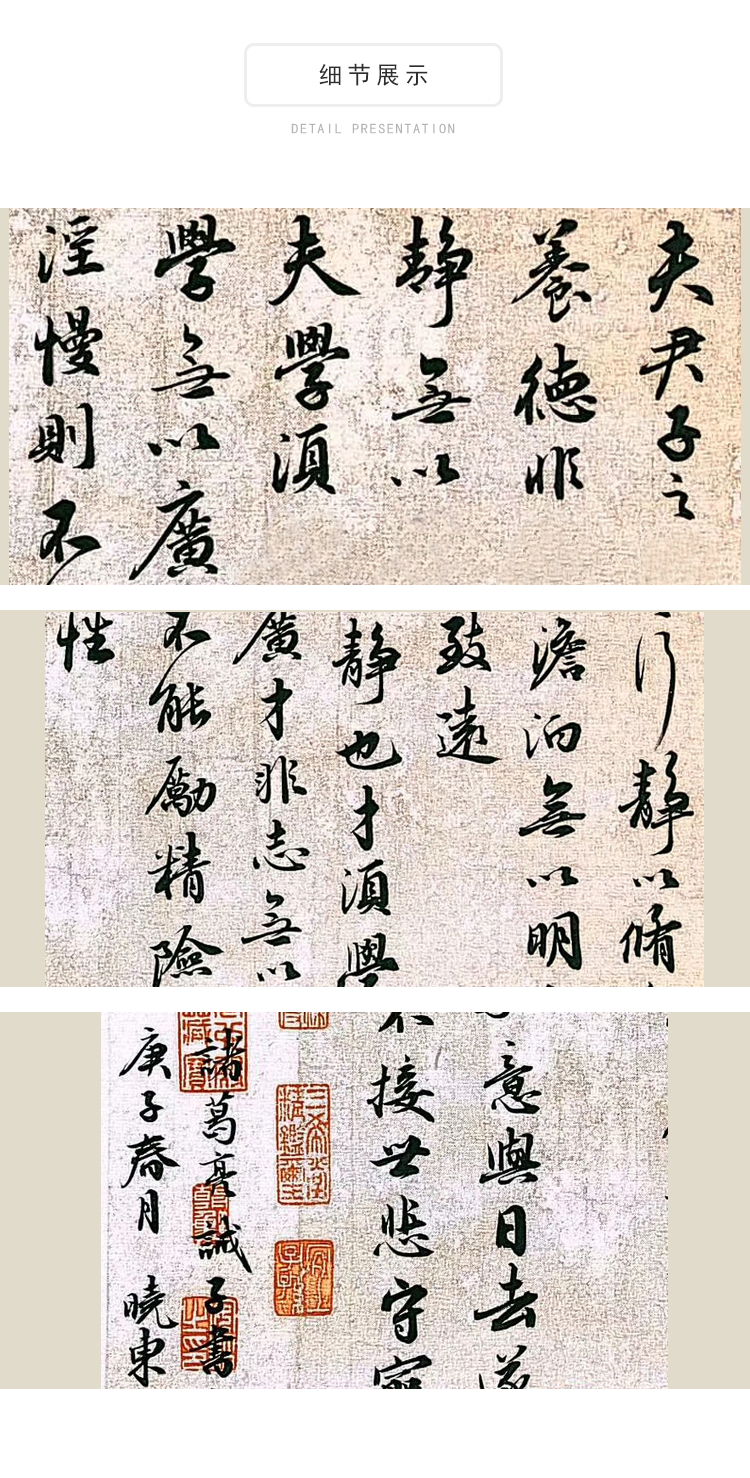 细节展示
DETAIL PRESENTATION
夫君子之
養徳非
静無以
夫學湏
學無以廣
淫慢則不
行静以脩
澹泊無以明
致遠
静也才湏學
廣才非志無以
不能勵精險
性
意與日去遂
不接世悲守窮
三希堂精鑑璽
宜子孫
諸葛亮誡子書
庚子春月 曉東